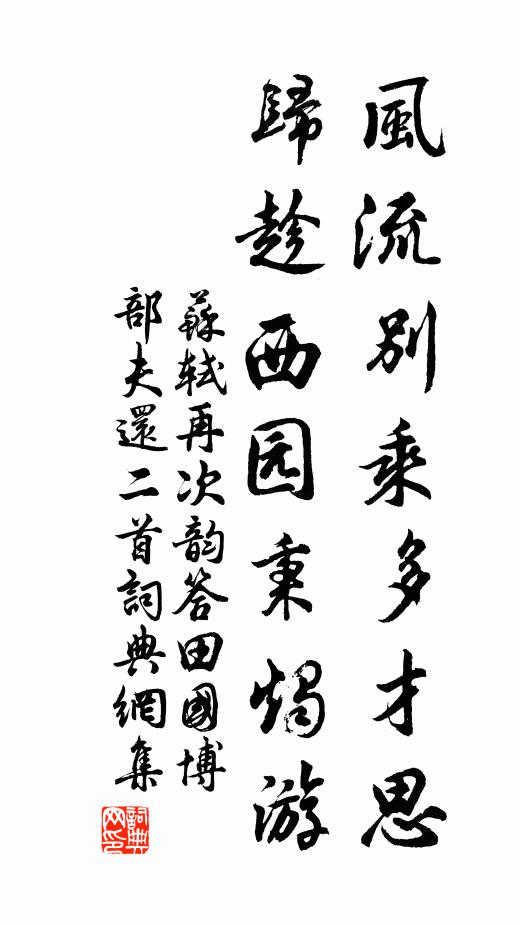 風流别乘多才思
歸趁西园秉燭游
蘇軾再次韵答田國博
部夫還二首詞典網集
詞典网印